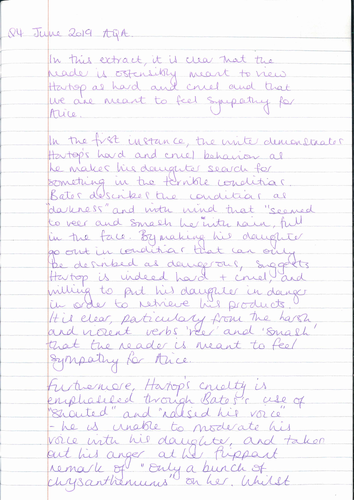 Q4 June 2019 AQA
In this extract, it is clear that the
reader is ostensibly meant to view
Hartop as hard and cruel and that
we are meant to feel sympathy for
Alice.
In the first instance, the writer demonstrates
Hartop's hard and cruel behavior as
he makes his daughter search for
something in the terrible conditions.
Bates describes the conditions as
"darkness" and with wind that "seemed
to veer and smash her" with rain, full
in the face. By making his daughter
go out in conditions that can only
be described as dangerous, suggests
Hartop is indeed hard + cruel, and
willing to put his daughter in danger
in order to retrieve his products.
It is clear, particularly from the harsh
and violent verbs 'veer' and 'smash'
that the reader is meant to feel
sympathy for Alice.
Furthermore, Hartop's cruelty is
emphasised through Bates's use of
"shouted" and "raised his voice"
- he is unable to moderate his
voice with his daughter, and takes
out his anger at her flippant
remark of "only a bunch of
chrysanthemums" on her. Whilst